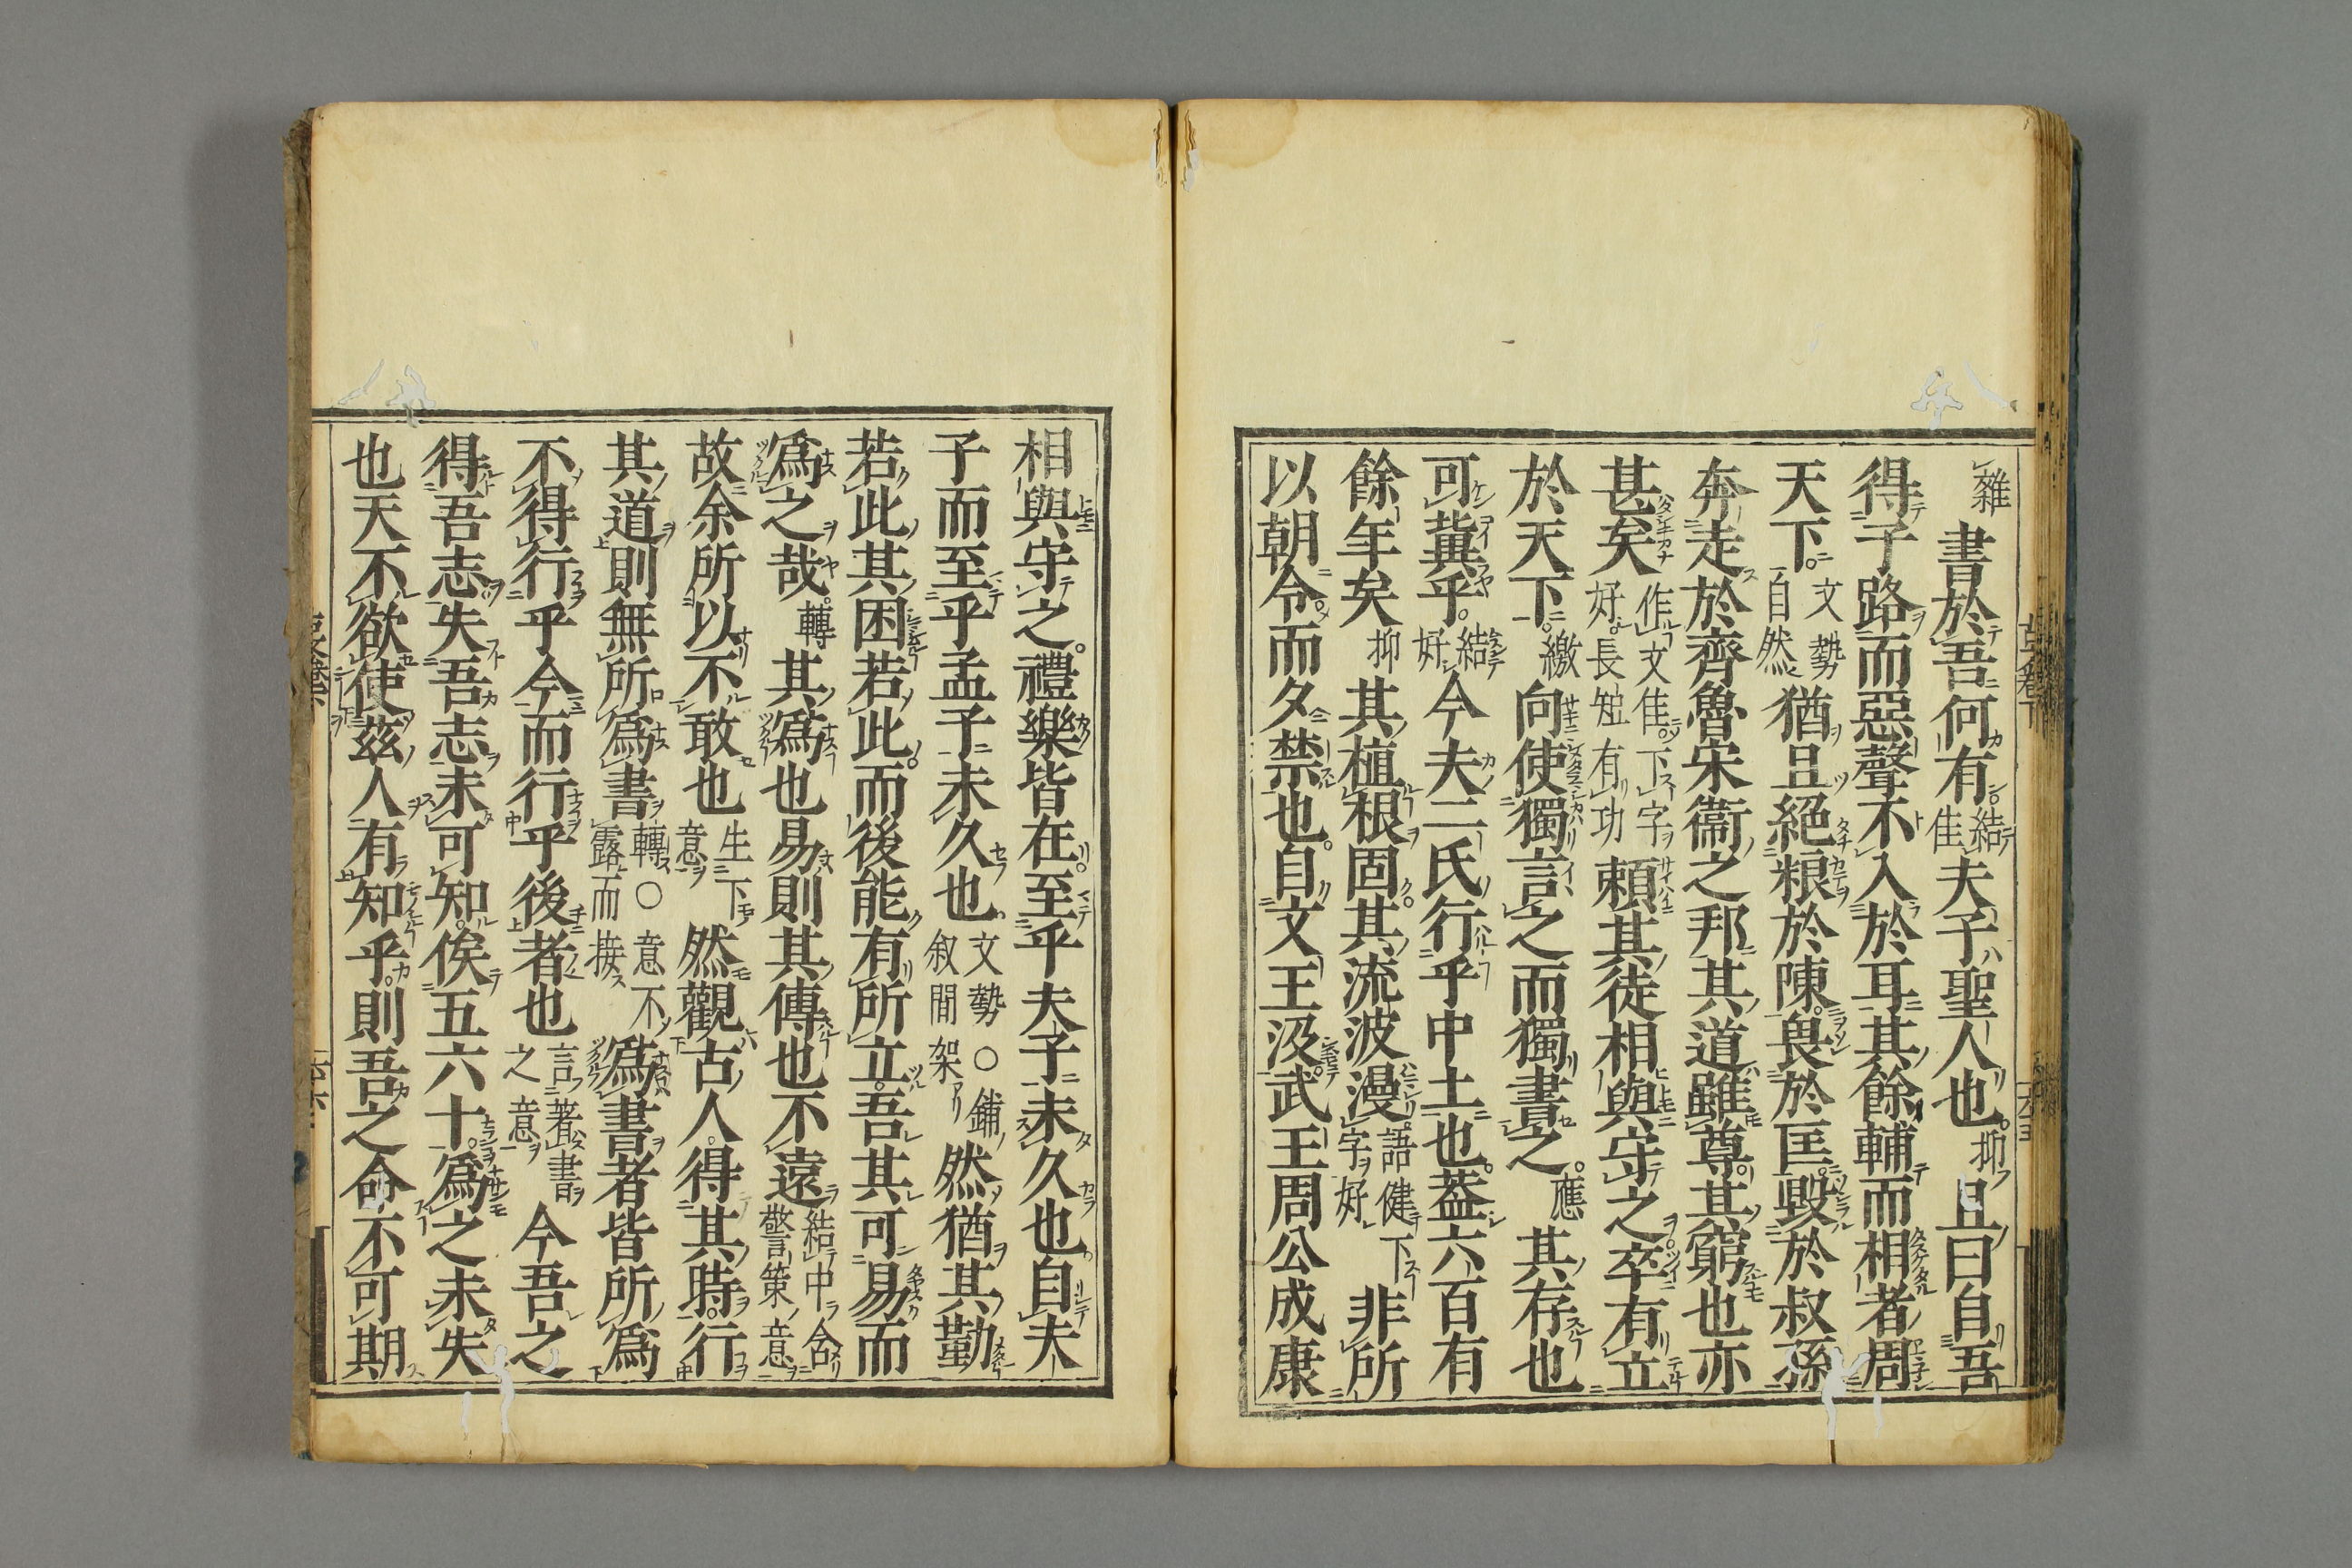 雜書於吾何有結佳夫子聖人也抑且曰自吾
得子路而惡聲不入於耳其餘輔而相者周
天下文勢自然猶且絕粮於陳畏於匡毀於叔孫
奔走於齊魯宋衞之邦其道雖尊其窮也亦
甚矣作文佳下字好長短有功賴其徒相與守之卒有立
於天下繳向使獨言之而獨書之應其存也
可冀乎結好今夫二氏行乎中土也蓋六百有
餘年矣抑其植根固其流波漫語健下字好非所
以朝令而夕禁也自文王沒武王周公成康
相與守之禮樂皆在至乎夫子未久也自夫
子而至乎孟子未久也文勢○鋪叙間架然猶其勤
若此其困若此而後能有所立吾其可易而
爲之哉轉其爲也易則其傳也不遠結中含警策意
故余所以不敢也生下意然觀古人得其時行
其道則無所爲書轉○意不露而接爲書者皆所爲
不得行乎今而行乎後者也言著書之意今吾之
得吾志失吾志未可知俟五六十爲之未失
也天不欲使茲人有知乎則吾之命不可期